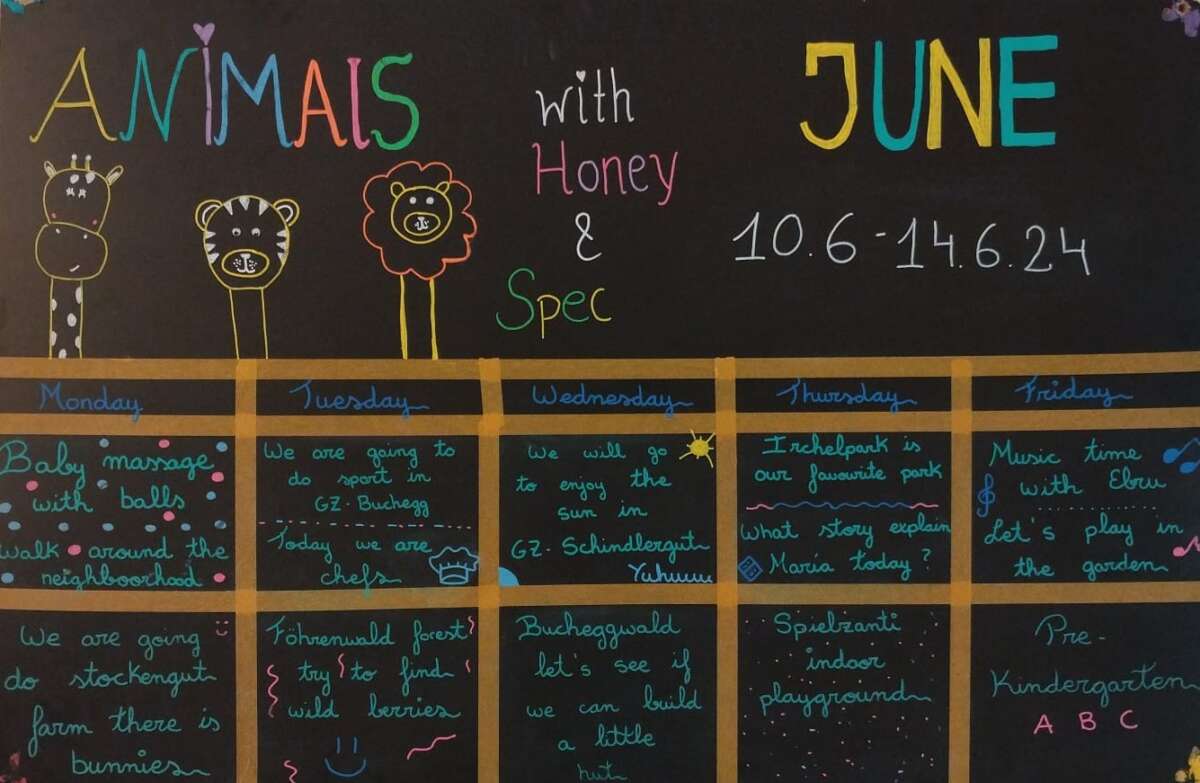 ANiMAlS
with
Honey
&
Spec
JUNE
10.6-14.6.24
Monday
Tuesday
Wednesday
Thursday
Friday
Baby massage
with balls
walk around the
neighboorhood
We are going to
do sport in
GZ-Buchegg
Today we are
chefs
We will go
to enjoy the
sun in
GZ-Schindlergut
Yuhuuu
Irchelpark is
our favourite park
What story explain
María today?
Music time
with Ebru
Let's play in
the garden
We are going
do stockengut
farm there is
bunnies
Föhrenwald forest
try to find
wild berries
Bucheggwald
let's see if
we can build
a little
hut
Spielzanti
indoor
playground
Pre-
Kindergarten
A B C